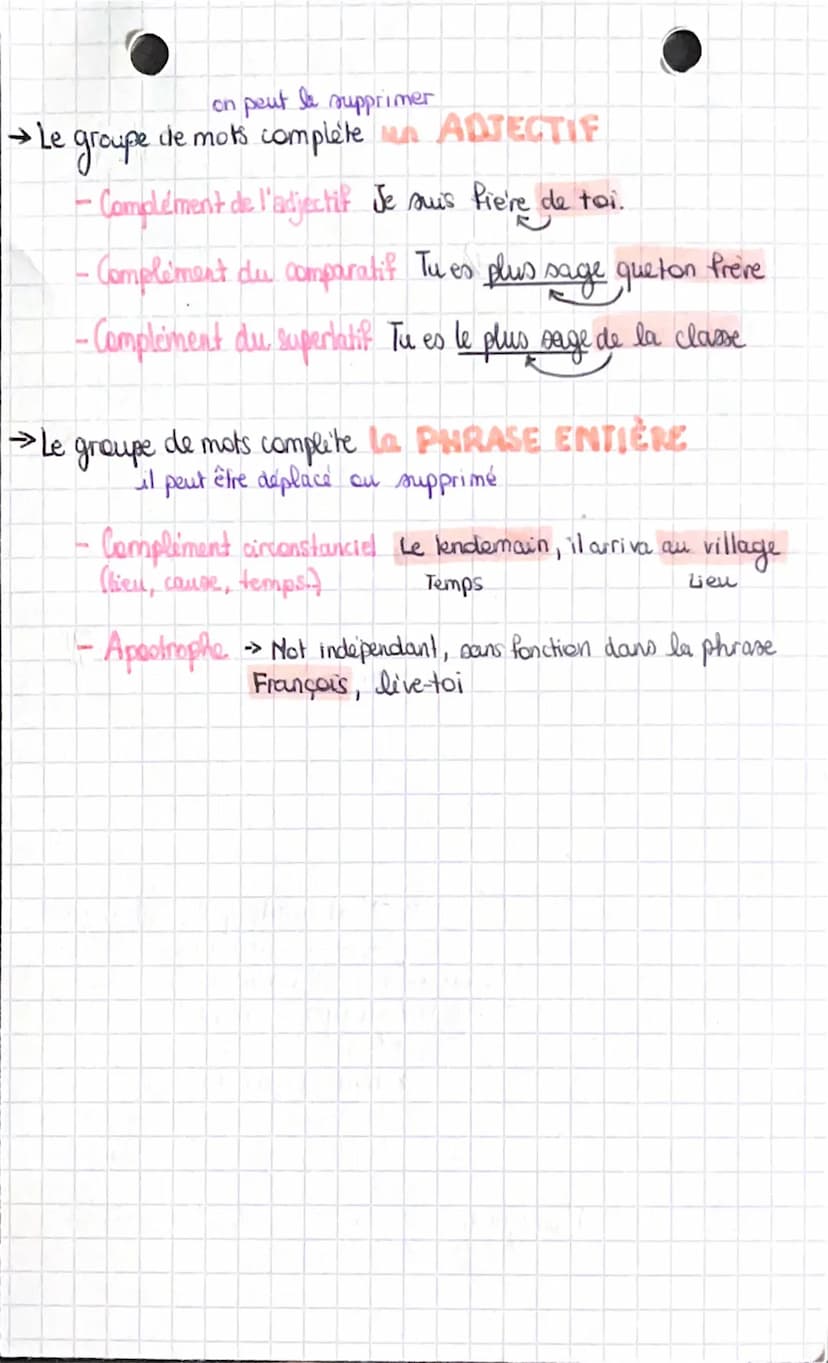 on peut le supprimer
→ Le groupe de mots complète un ADJECTIF
- Complément de l'adjectif Je suis fière de toi.
- Complément du comparatif Tu es plus sage que ton frère
- Complément du superlatif Tu es le plus sage de la classe
→ Le groupe de mots complète la PHRASE ENTIÈRE
il peut être déplacé ou supprimé
- Complément circonstanciel Le lendemain, il arriva au village
(lieu, cause, temps..) Temps Lieu
- Apostrophe → Mot indépendant, sans fonction dans la phrase
François, lève-toi